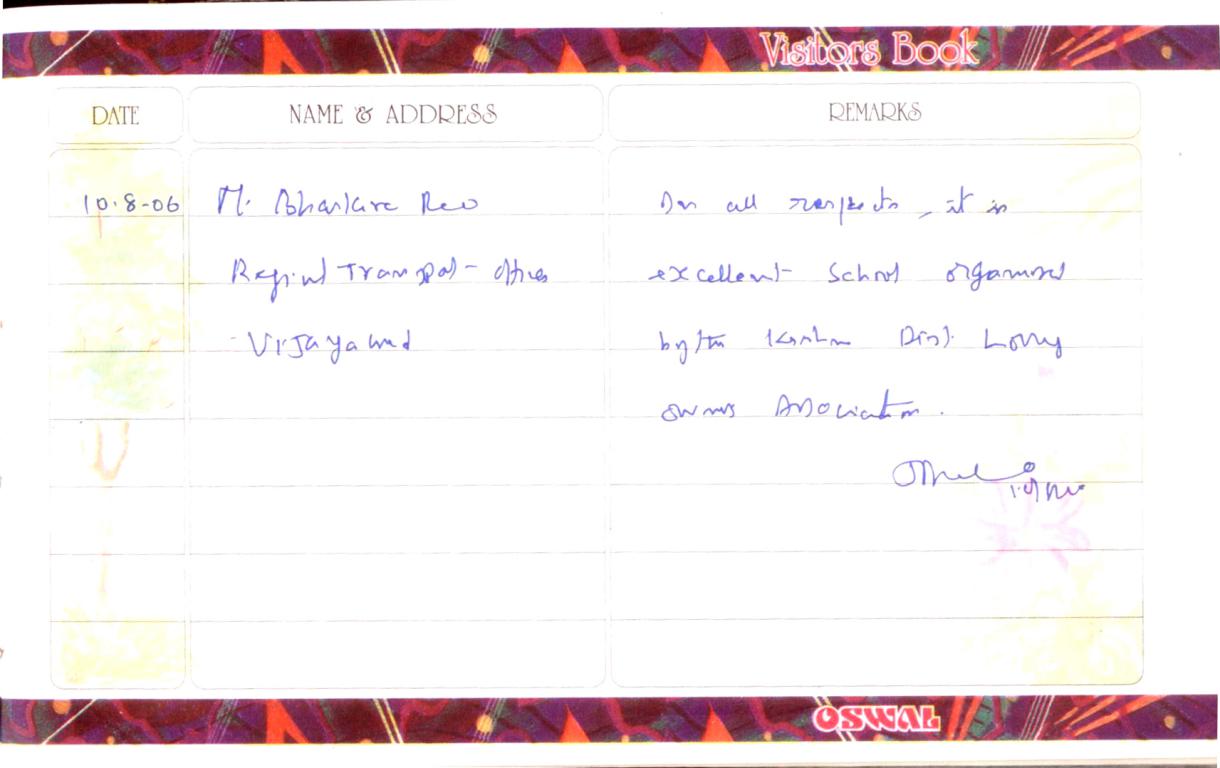 Visitors Book
DATE NAME & ADDRESS REMARKS
10.8-06 M. Bhaskara Rao In all respects, it is
Regional Transport officer excellent School organised
Vijayawad by the Krishna Dist. Lorry
owners Association.
OSWAL